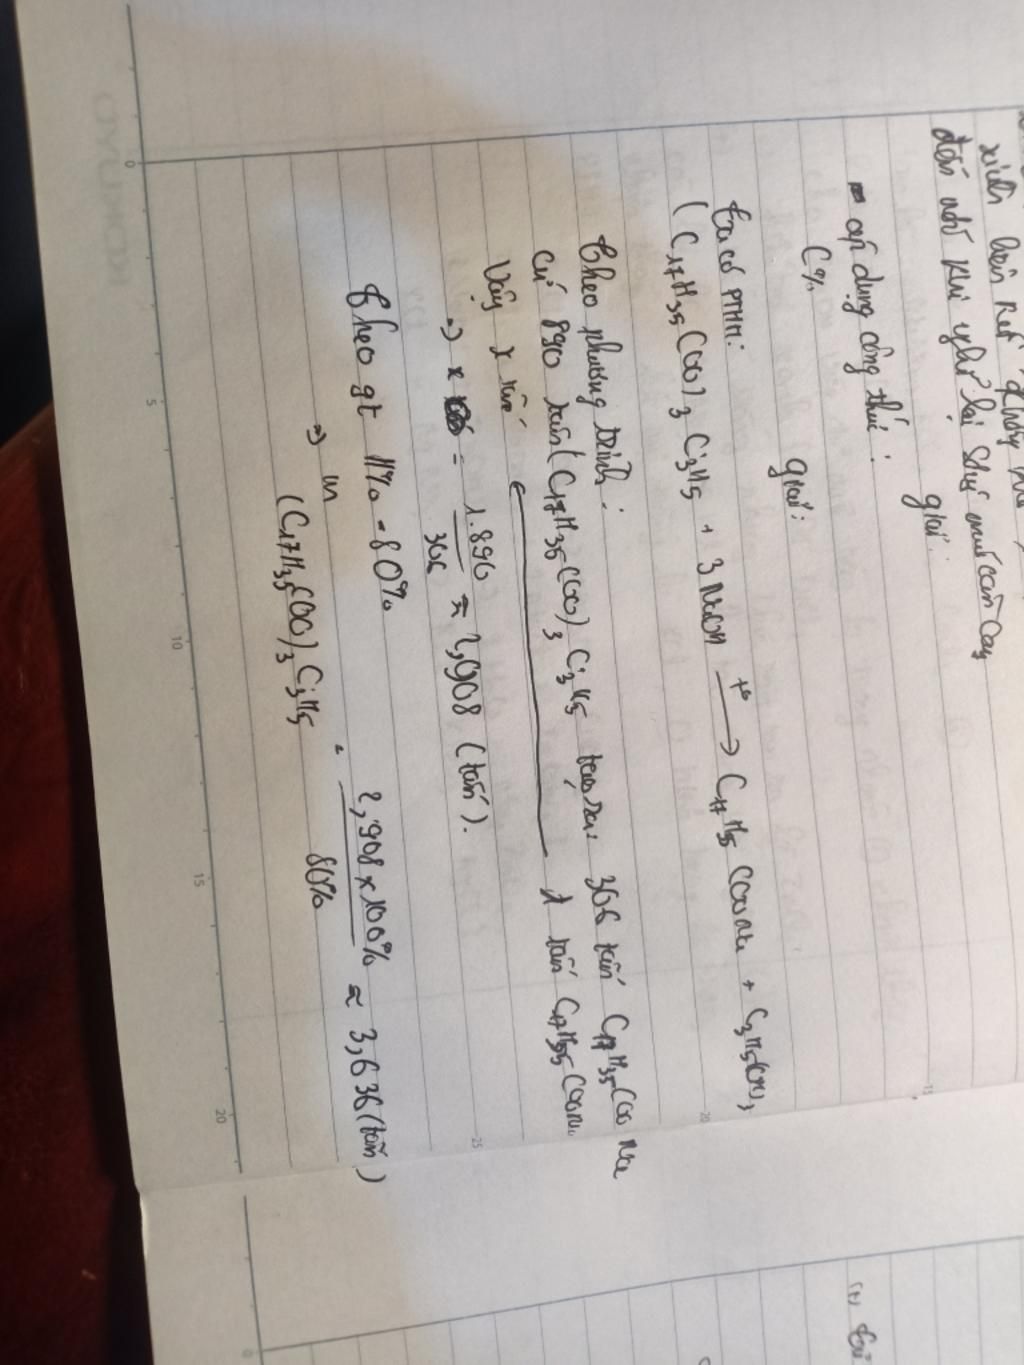 đến khi
giải:
áp dụng công thức:
C%
giải:
ta có PTHH:
(C17H35COO)3C3H5 + 3NaOH t° → C17H35COONa + C3H5(OH)3
Theo phương trình:
Cứ 890 tấn (C17H35COO)3C3H5 tạo ra: 306 tấn C17H35COONa
Vậy x tấn ← 1 tấn C17H35COONa
=> x = 1.890 / 306 ≈ 2,908 (tấn).
Theo gt H% = 80%
=> m (C17H35COO)3C3H5 = 2,908 x 100% / 80% ≈ 3,636 (tấn)